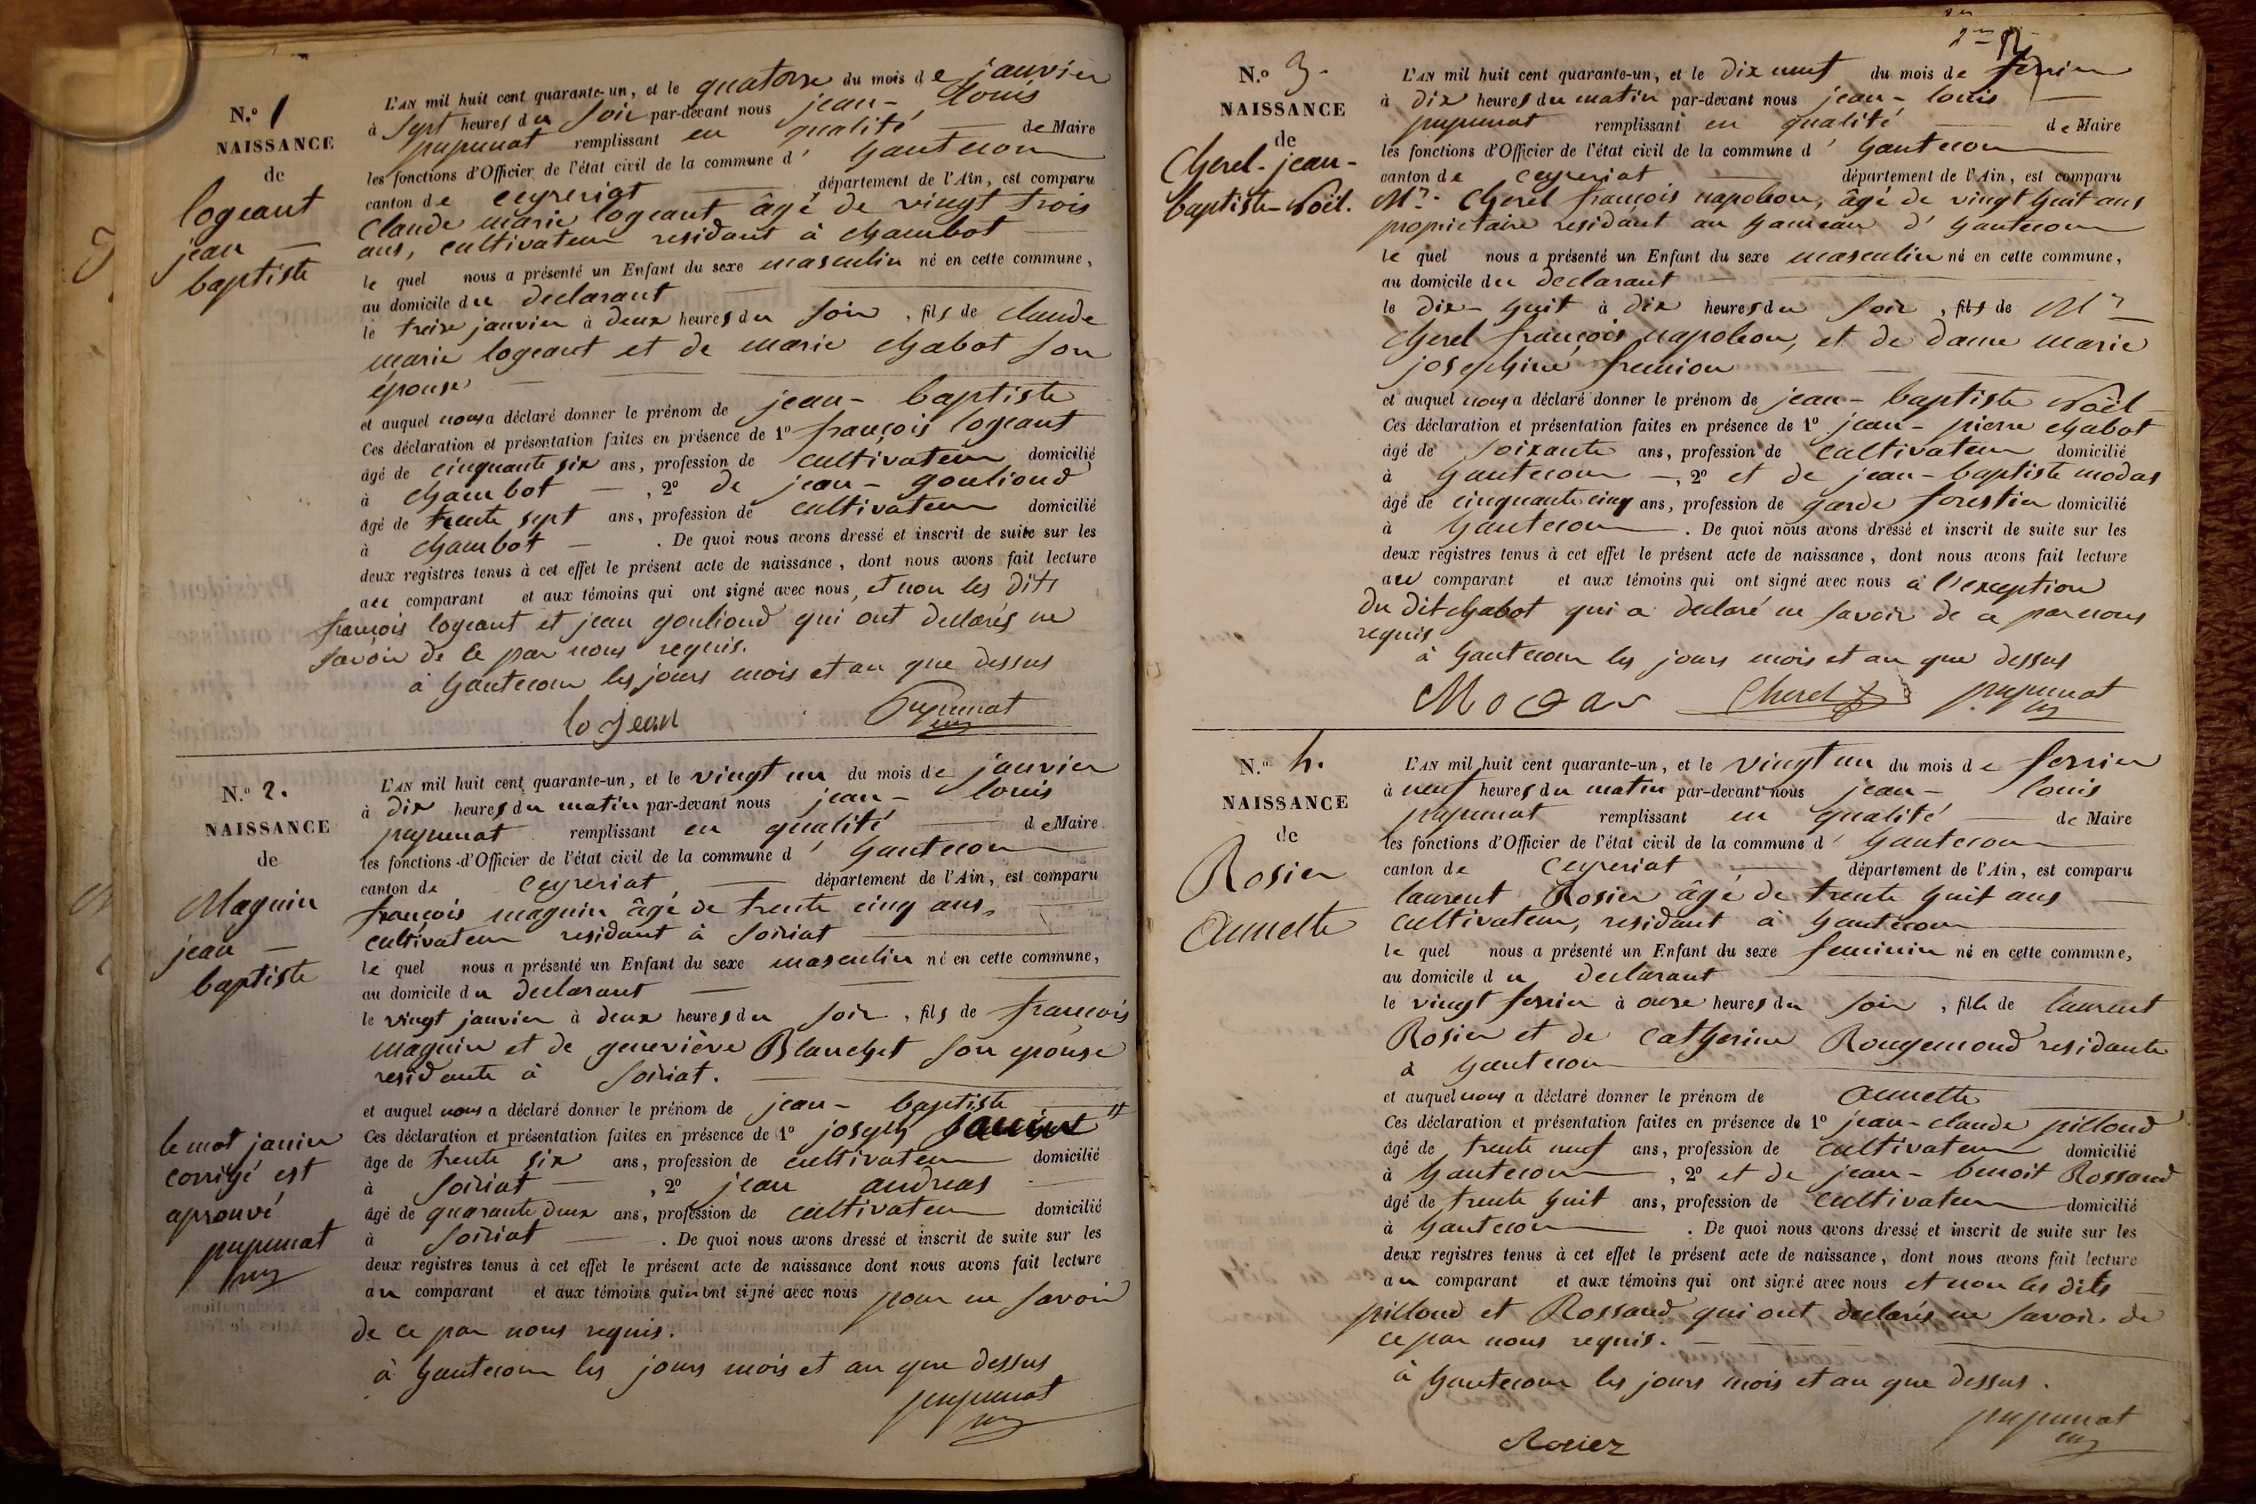 N.o 1
NAISSANCE
de
logeant
jean —
baptiste
L'AN mil huit cent quarante-un, et le quatorze du mois de janvier
à sept heures du soir par-devant nous jean - louis
pupunat remplissant en qualité — de Maire
les fonctions d'Officier de l'état civil de la commune d' hautecour
canton de ceyzeriat — département de l'Ain, est comparu
claude marie logeant âgé de vingt trois
ans, cultivateur residant à chambot —
le quel nous a présenté un Enfant du sexe masculin né en cette commune,
au domicile du declarant —
le treize janvier à deux heures du soir, fils de claude
marie logeant et de marie chabot son
épouse —
et auquel nous a déclaré donner le prénom de jean - baptiste
Ces déclaration et présentation faites en présence de 1o françois logeant
âgé de cinquante six ans, profession de cultivateur domicilié
à chambot — , 2o de jean - gouliond
âgé de trente sept ans, profession de cultivateur domicilié
à chambot — . De quoi nous avons dressé et inscrit de suite sur les
deux registres tenus à cet effet le présent acte de naissance, dont nous avons fait lecture
au comparant et aux témoins qui ont signé avec nous, et non les dits
françois logeant et jean gouliond qui ont declarés ne
savoir de ce par nous requis.
à hautecour les jours mois et an que dessus
lo jean pupunat
N.o 2.
NAISSANCE
de
Maguin
jean —
baptiste
L'AN mil huit cent quarante-un, et le vingt un du mois de janvier
à dix heures du matin par-devant nous jean - louis
pupunat remplissant en qualité — de Maire
les fonctions d'Officier de l'état civil de la commune d' hautecour
canton de ceyzeriat — département de l'Ain, est comparu
françois maguin âgé de trente cinq ans,
cultivateur residant à soiriat —
le quel nous a présenté un Enfant du sexe masculin né en cette commune,
au domicile du declarant —
le vingt janvier à deux heures du soir, fils de françois
maguin et de geneviève Blanchet son épouse
residante à soiriat. —
et auquel nous a déclaré donner le prénom de jean - baptiste
Ces déclaration et présentation faites en présence de 1o joseph janin
âgé de trente six ans, profession de cultivateur domicilié
à soiriat — , 2o jean andreas
âgé de quarante deux ans, profession de cultivateur domicilié
à soiriat — . De quoi nous avons dressé et inscrit de suite sur les
deux registres tenus à cet effet le présent acte de naissance dont nous avons fait lecture
au comparant et aux témoins qui n'ont signé avec nous pour ne savoir
de ce par nous requis.
à hautecour les jours mois et an que dessus
pupunat
le mot janin
corrigé est
aprouvé
pupunat
N.o 3.
NAISSANCE
de
Cherel - jean -
baptiste - Noël.
L'AN mil huit cent quarante-un, et le dix neuf du mois de fevrier
à dix heures du matin par-devant nous jean - louis —
pupunat remplissant en qualité — de Maire
les fonctions d'Officier de l'état civil de la commune d' hautecour
canton de ceyzeriat — département de l'Ain, est comparu
Mr. Cherel françois napoleon, âgé de vingt huit ans
propriétaire residant au hameau d' hautecour
le quel nous a présenté un Enfant du sexe masculin né en cette commune,
au domicile du declarant —
le dix - huit à dix heures du soir, fils de Mr
Cherel françois napoleon, et de dame marie
josephine fremion
et auquel nous a déclaré donner le prénom de jean - baptiste Noël
Ces déclaration et présentation faites en présence de 1o jean - pierre chabot
âgé de soixante ans, profession de cultivateur domicilié
à hautecour —, 2o et de jean - baptiste modas
âgé de cinquante cinq ans, profession de garde forestier domicilié
à hautecour — . De quoi nous avons dressé et inscrit de suite sur les
deux registres tenus à cet effet le présent acte de naissance, dont nous avons fait lecture
au comparant et aux témoins qui ont signé avec nous à l'exception
du dit chabot qui a declaré ne savoir de ce par nous
requis
à hautecour les jours mois et an que dessus
Modas Cherel pupunat
N.o 4.
NAISSANCE
de
Rosier
Annette
L'AN mil huit cent quarante-un, et le vingt un du mois de fevrier
à neuf heures du matin par-devant nous jean - louis
pupunat remplissant en qualité — de Maire
les fonctions d'Officier de l'état civil de la commune d' hautecour
canton de ceyzeriat — département de l'Ain, est comparu
laurent Rosier âgé de trente huit ans
cultivateur, residant à hautecour
le quel nous a présenté un Enfant du sexe feminin né en cette commune,
au domicile du declarant —
le vingt fevrier à onze heures du soir, fille de laurent
Rosier et de catherine Rougemond residante
à hautecour
et auquel nous a déclaré donner le prénom de annette
Ces déclaration et présentation faites en présence de 1o jean - claude pilloud
âgé de trente neuf ans, profession de cultivateur domicilié
à hautecour — , 2o et de jean - benoit Rossand
âgé de trente huit ans, profession de cultivateur domicilié
à hautecour — . De quoi nous avons dressé et inscrit de suite sur les
deux registres tenus à cet effet le présent acte de naissance, dont nous avons fait lecture
au comparant et aux témoins qui ont signé avec nous et non les dits
pilloud et Rossand qui ont declarés ne savoir de
ce par nous requis. —
à hautecour les jours mois et an que dessus.
pupunat
Rosier